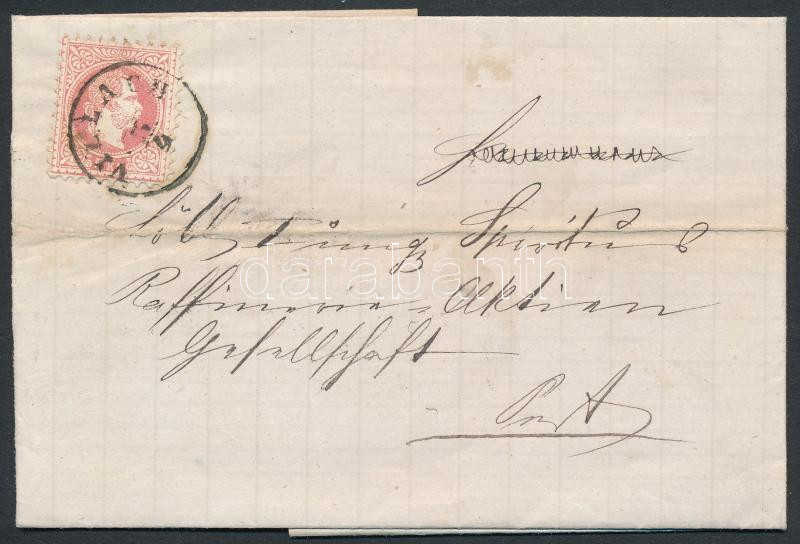 VILLACH
Löbl.
Spiritus
Raffinerie-Aktien
Gesellschaft
Pest
darabanth